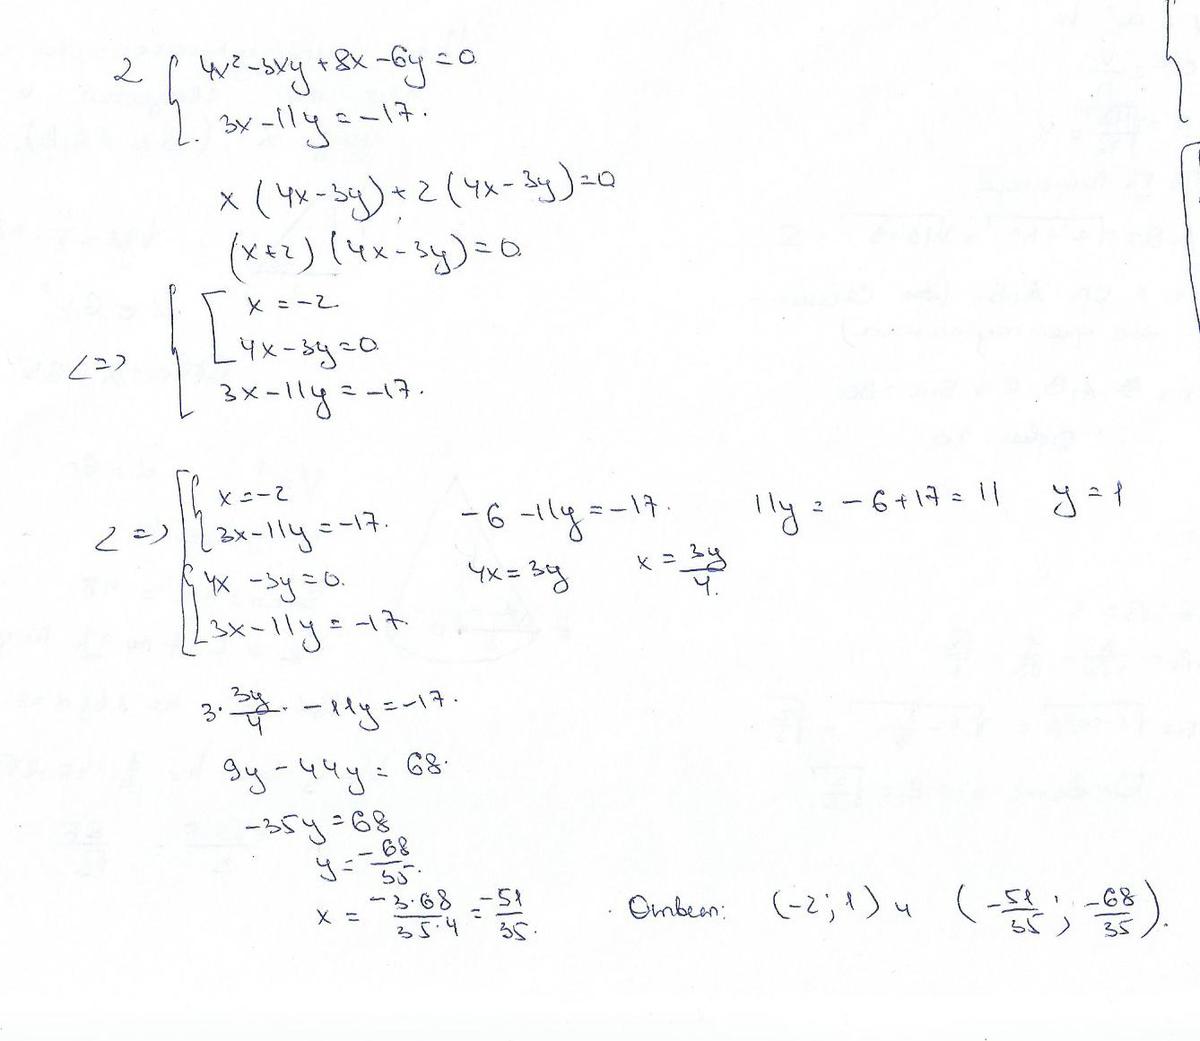 2 { 4x² - 3xy + 8x - 6y = 0
3x - 11y = -17.
x (4x - 3y) + 2 (4x - 3y) = 0
(x+2) (4x - 3y) = 0
x = -2
<=> { [ 4x - 3y = 0
3x - 11y = -17.
x = -2
<=> [ { 3x - 11y = -17. -6 - 11y = -17. 11y = -6 + 17 = 11 y = 1
{ 4x - 3y = 0. 4x = 3y x = 3y/4.
3x - 11y = -17.
3 · 3y/4 · - 11y = -17.
9y - 44y = 68.
-35y = 68
y = -68/35.
x = -3·68/35·4 = -51/35. Ответ: (-2; 1) и (-51/35; -68/35).